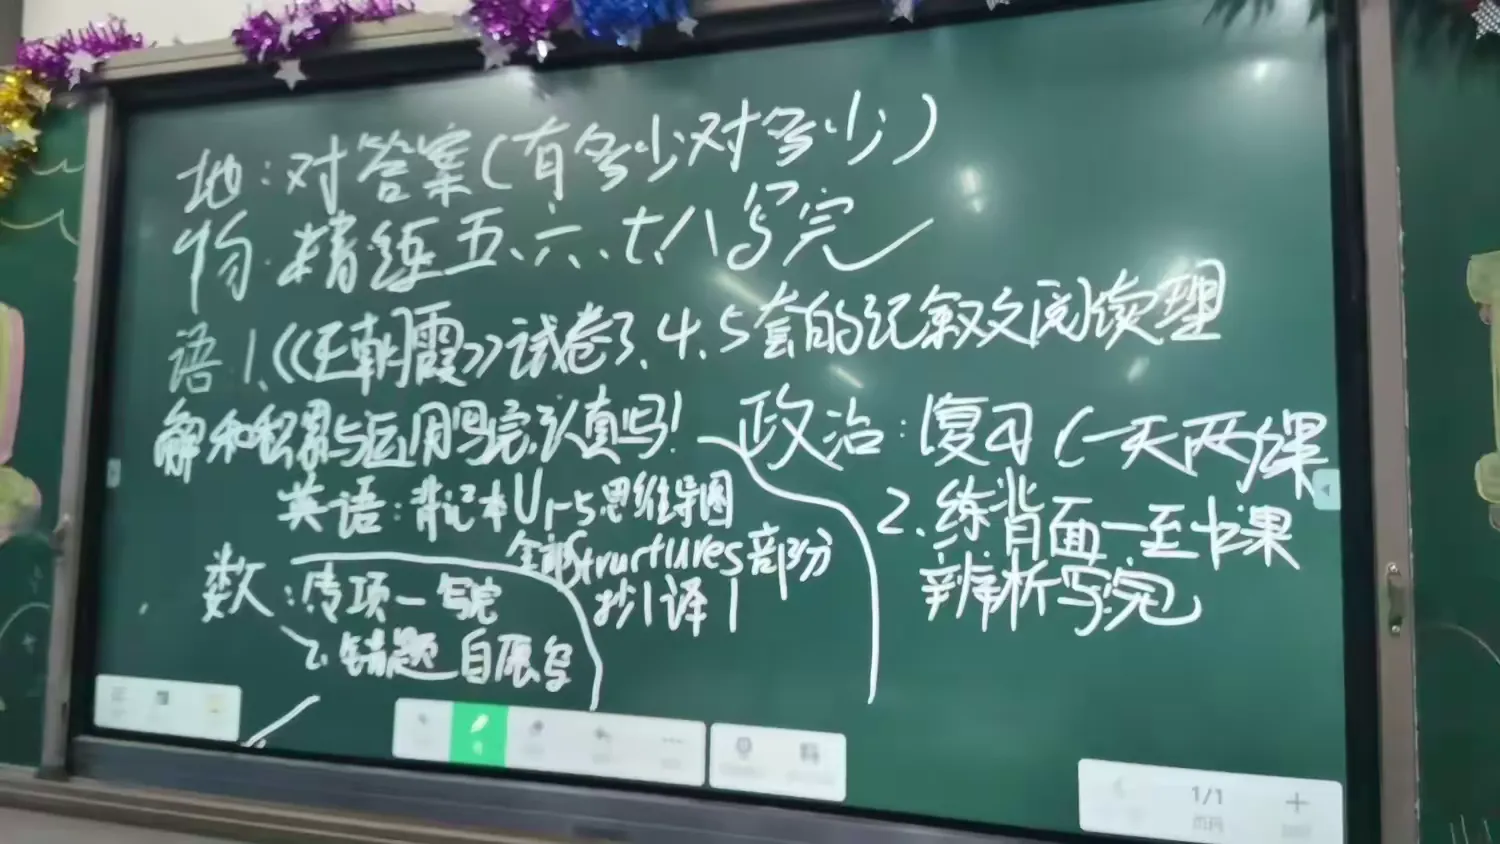 地：对答案(有多少对多少)
物：精练五、六、七、八写完
语：1、《王朝霞》试卷3、4、5套的记叙文阅读理
解和积累与运用写完认真写！
政治：复习(一天两课
2、练背面一至七课
辨析写完
英语：背记本U1-5思维导图
全部Structures部分
抄1译1
数：专项一写完
2、错题
1/1